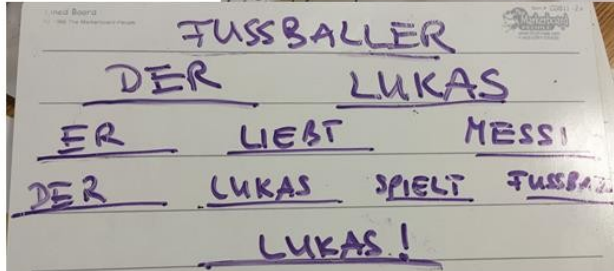 Lined Board
The Markerboard People
Markerboard
FUSSBALLER
DER LUKAS
ER LIEBT MESSI
DER LUKAS SPIELT FUSSBA
LUKAS!